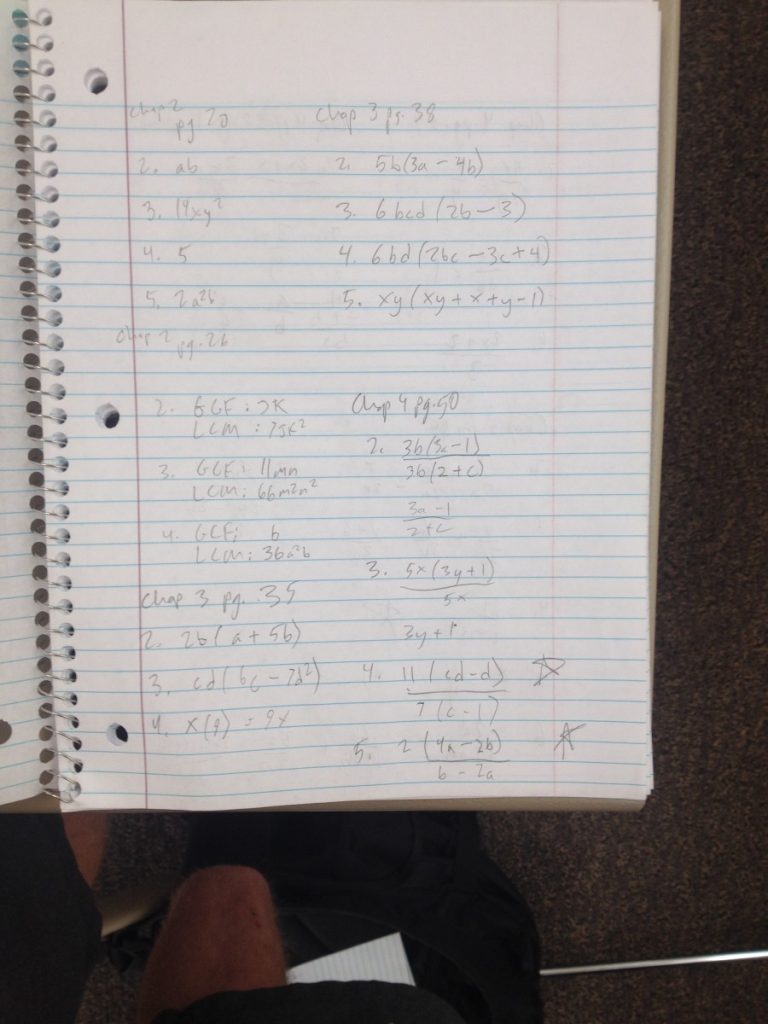 Chap 2
pg 20
2. ab
3. 14xy²
4. 5
5. 2a²b
Chap 2
pg. 26
2. GCF: 5K
LCM: 75K²
3. GCF: 11mn
LCM: 66m²n²
4. GCF: b
LCM: 36a²b
Chap 3 pg. 35
2. 2b(a + 5b)
3. cd(6c - 7d²)
4. x(9) = 9x
Chap 3 pg. 38
2. 5b(3a - 4b)
3. 6bcd(2b - 3)
4. 6bd(2bc - 3c + 4)
5. xy(xy + x + y - 1)
Chap 4 pg. 50
2. 3b(3a - 1)
3b(2 + c)
3a - 1
2 + c
3. 5x(3y + 1)
5x
3y + 1
4. 11(cd - d)
7(c - 1)
5. 2(4a - 2b)
b - 2a